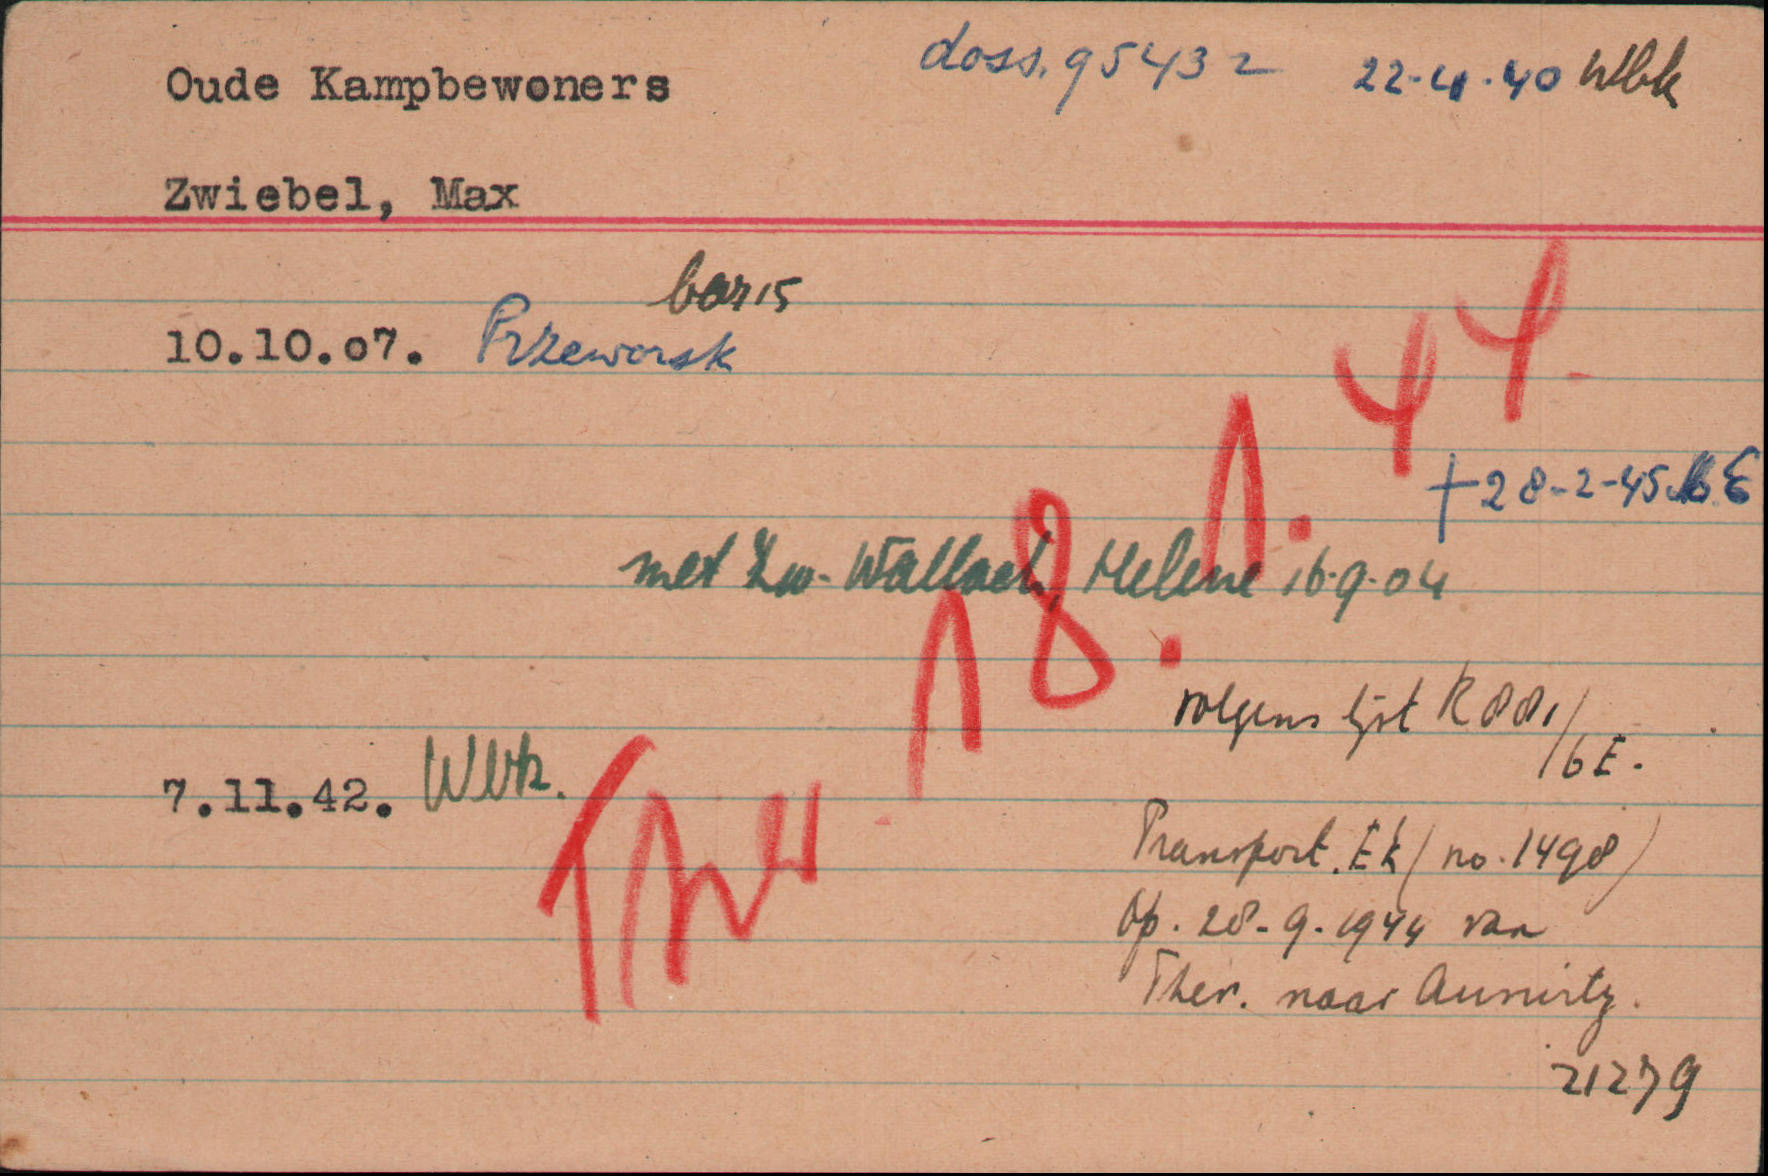 Oude Kampbewoners
doss. 95432 22-4-40 Wbk
Zwiebel, Max
bar 15
10.10.07. Przeworsk
† 28-2-45 M.E
met Zw-Wallach, Helene 16-9-04
Ther 18.1.44.
volgens lijst R881/
16E.
7.11.42. Wbk.
Transport. Ek (no. 1498)
op. 28-9-1944 van
Ther. naar Auswitz.
21279